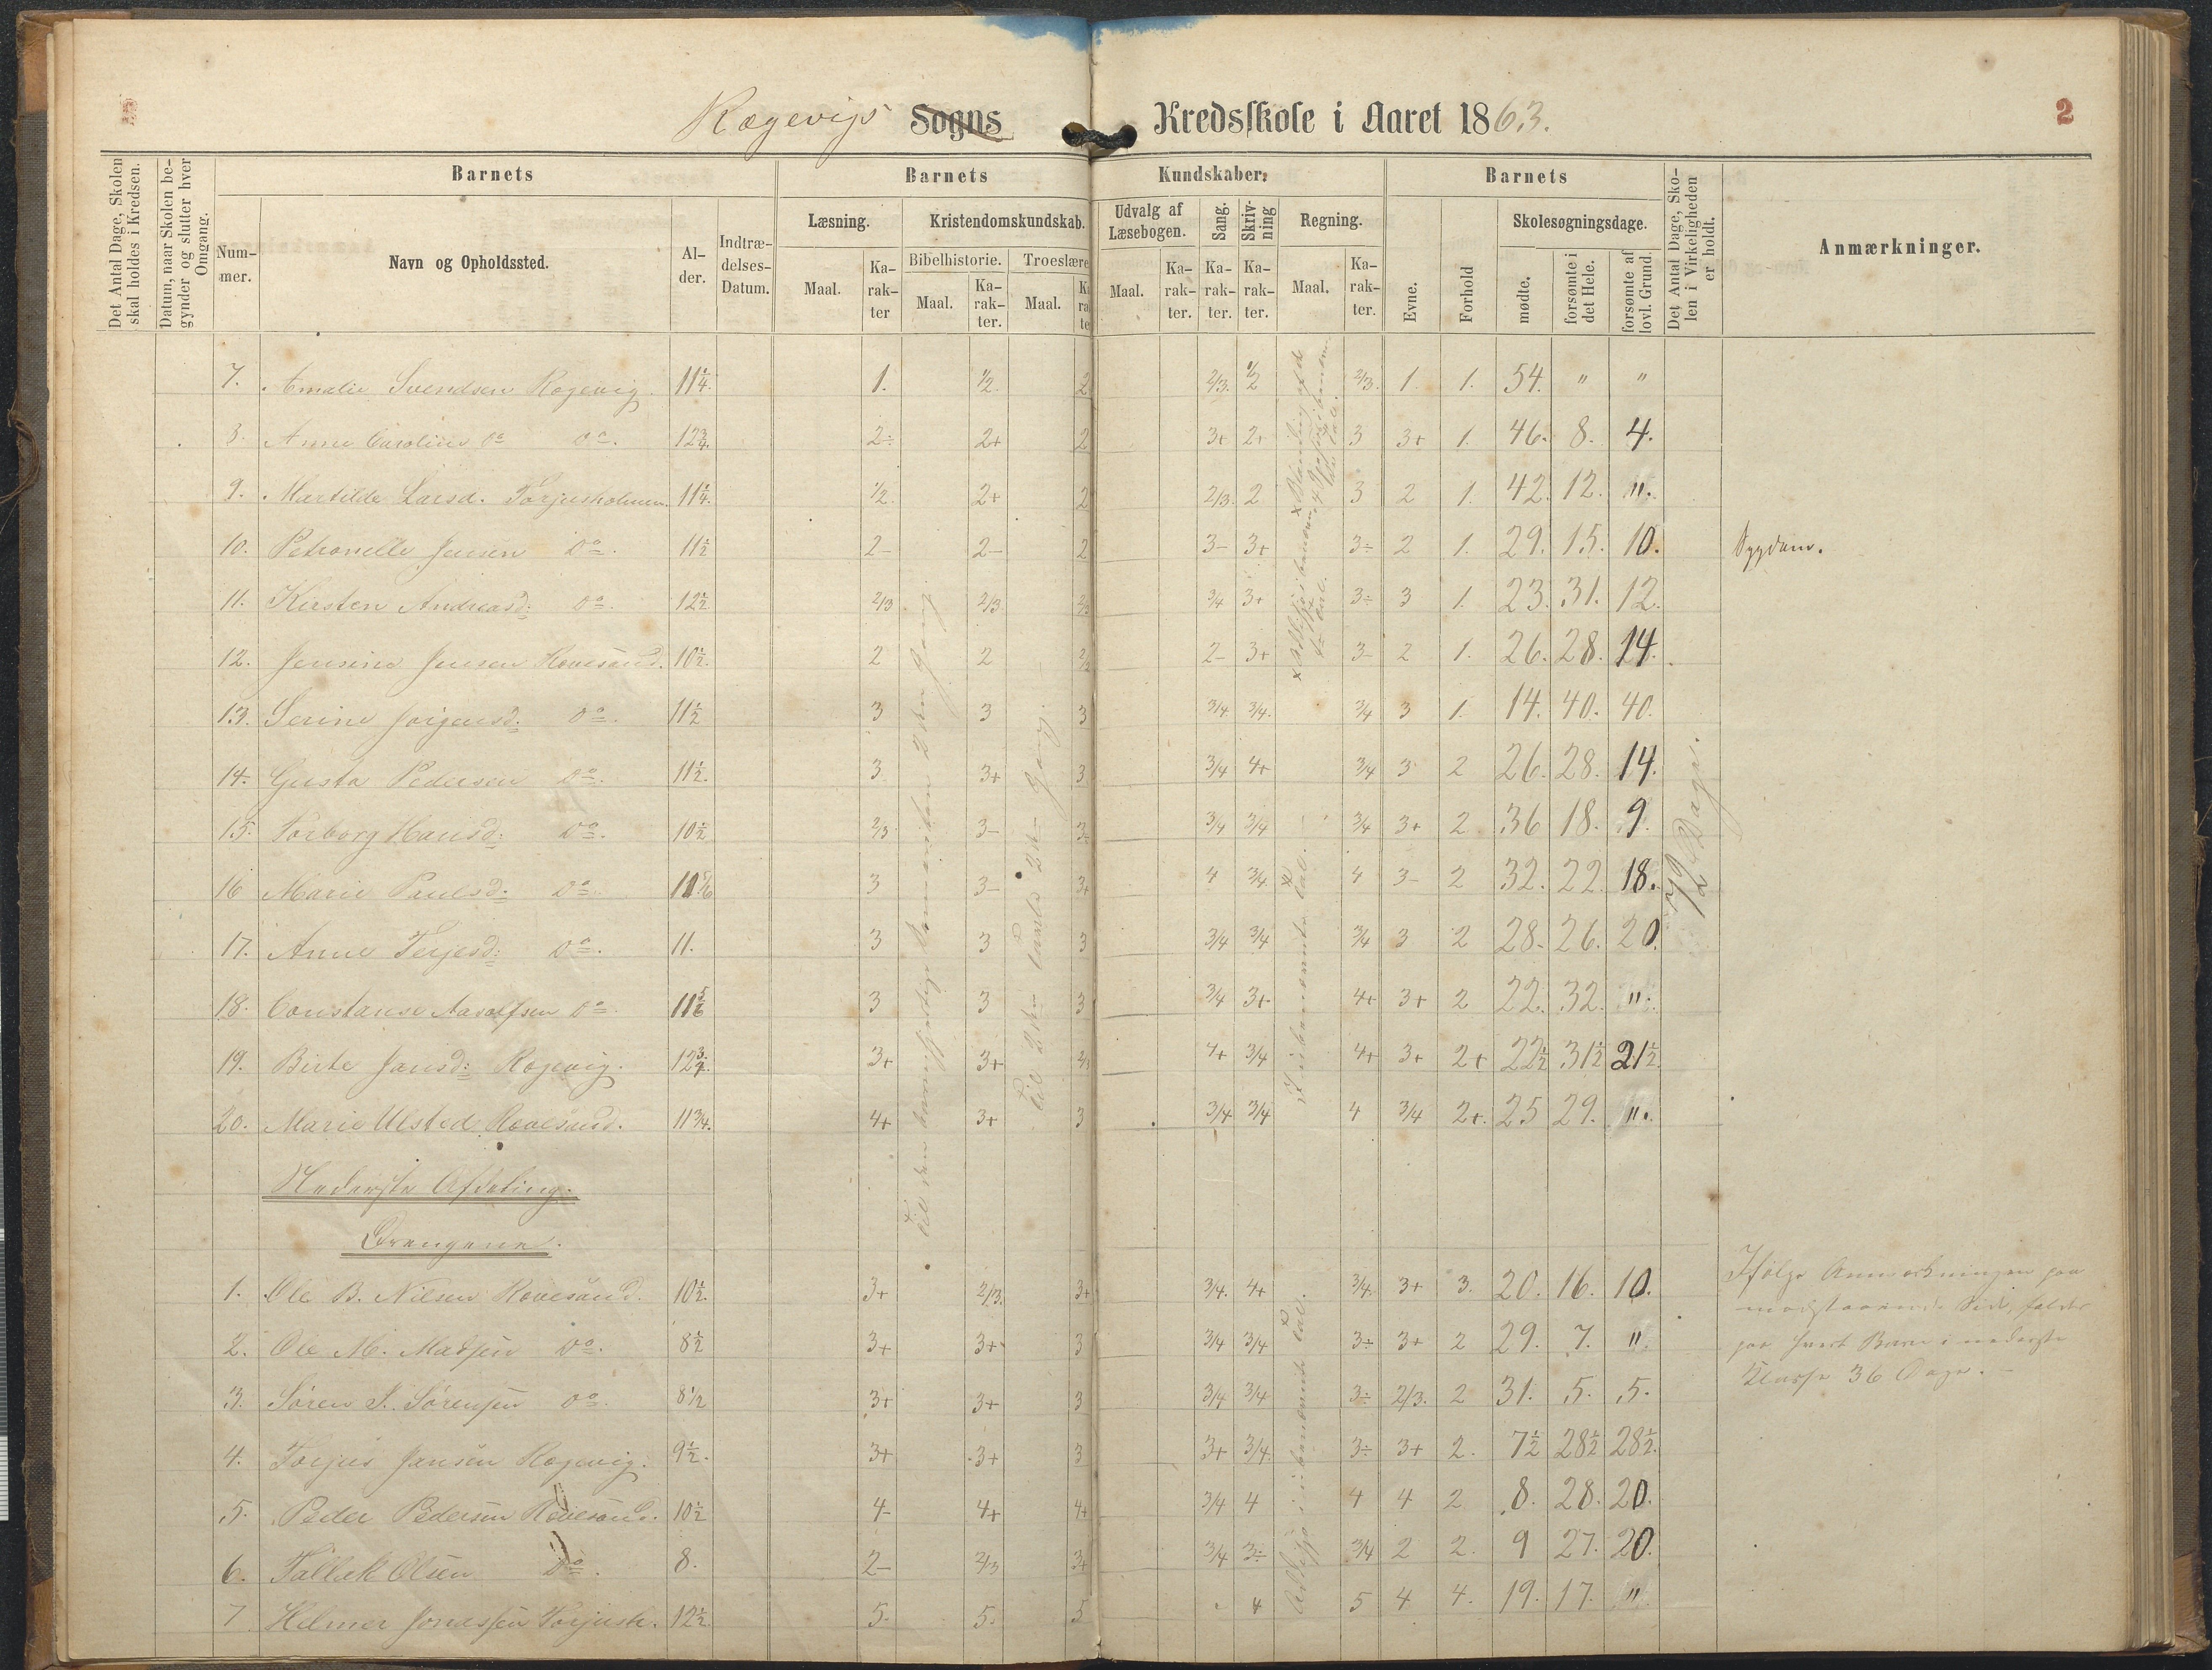 Rægevigs Sogns Kredsskole i Aaret 1863.
2
Det Antal Dage, Skolen skal holdes i Kredsen.
Datum, naar Skolen begynder og slutter hver Omgang.
Barnets
Barnets
Kundskaber.
Barnets
Det Antal Dage, Skolen i Virkeligheden er holdt.
Anmærkninger.
Nummer.
Navn og Opholdssted.
Alder.
Indtrædelses-Datum.
Læsning.
Kristendomskundskab.
Udvalg af Læsebogen.
Sang.
Skrivning
Regning.
Evne.
Forhold
Skolesøgningsdage.
Bibelhistorie.
Troeslære
Maal.
Karakter
Maal.
Karakter.
Maal.
Maal.
Karakter.
Karakter.
Karakter.
Maal.
Karakter.
mødte.
forsømte i det Hele.
forsømte af lovl. Grund.
7. Amalie Svendsen Rægevig. 11 1/4. 1. 1/2. 2 2/3. 1/2 2/3. 1. 1. 54. " "
8. Anne Caroline Do Do. 12 3/4. 2÷ 2+ 2 3+ 2+ 3 3+ 1. 46. 8. 4.
9. Martilde Larsd. Torjusholmen. 11 1/4. 1/2. 2+ 2 2/3. 2 3 2 1. 42. 12. ".
10. Petronelle Jensen Do. 11 1/2 2- 2- 2 3- 3+ 3÷ 2 1. 29. 15. 10. Sygdom.
11. Kirsten Andreasd: Do. 12 1/2 2/3 2/3 2/3 3/4 3+ 3÷ 3 1. 23. 31. 12.
12. Jensine Jensen Rævesand. 10 1/2. 2 2 2/3 2- 3+ 3- 2 1. 26. 28. 14.
13. Serine Jørgensd: Do. 11 1/2 3 3 3 3/4 3/4. 3/4 3 1. 14. 40. 40.
14. Gusta Pedersen Do. 11 1/2. 3 3+ 3 3/4 4+ 3/4 3 2 26. 28. 14.
15. Torborg Hansd: Do. 10 1/2 2/3 3- 3- 3/4 3/4 3/4 3+ 2 36 18. 9.
16 Marie Paulsd: Do. 10 5/6 3 3- 3+ 4 3/4 4 3- 2 32. 22 18.
17. Anne Terjesd: Do. 11. 3 3 3 3/4 3/4 3/4 3 2 28. 26. 20.
18. Constanse Aadolfsen Do. 11 5/6 3 3 3 3/4 3+ 4+ 3+ 2 22. 32. ".
19. Birte Jansd: Rægevig. 12 3/4. 3+ 3+ 2/3 4+ 3/4 4+ 3+ 2+ 22 1/2 31 1/2 21 1/2.
20. Marie Ulsted Rævesand. 11 3/4. 4+ 3+ 3 3/4 3/4 4 3/4 2+. 25 29. ".
72 Dage.
Nederste Afdeling.
Drengene.
1. Ole B. Nilsen Rævesand. 10 1/2. 3+ 2/3. 3+ 3/4. 4+ 3/4. 3+ 3. 20. 16. 10.
2. Ole M. Madsen Do. 8 1/2 3+ 3+ 3 3/4 3/4 3÷ 3+ 2 29. 7. ".
3. Søren S. Sørensen Do. 8 1/2 3+ 3+ 3 3/4 3/4 3÷ 2/3. 2 31. 5. 5.
4. Torjus Jansen Rægevig. 9 1/2. 3+ 3+ 3 3+ 3/4. 3÷ 3+ 2. 7 1/2 28 1/2 28 1/2.
5. Peder Pedersen Rævesand. 10 1/2 4- 4+ 4+ 3/4 4 4 4 2 8. 28. 20.
6. Tallak Olsen Do. 8. 2- 2/3 3+ 3/4 3÷ 3/4 2 2. 9 27. 20.
7 Helmer Jonassen Torjush. 12 1/2 5. 5. 5 4 5 4 4. 19. 17. "
Ifølge Anmærkningen paa
modstaaende Side, falder
paa hvert Barn i nederste
Klasse 36 Dage.